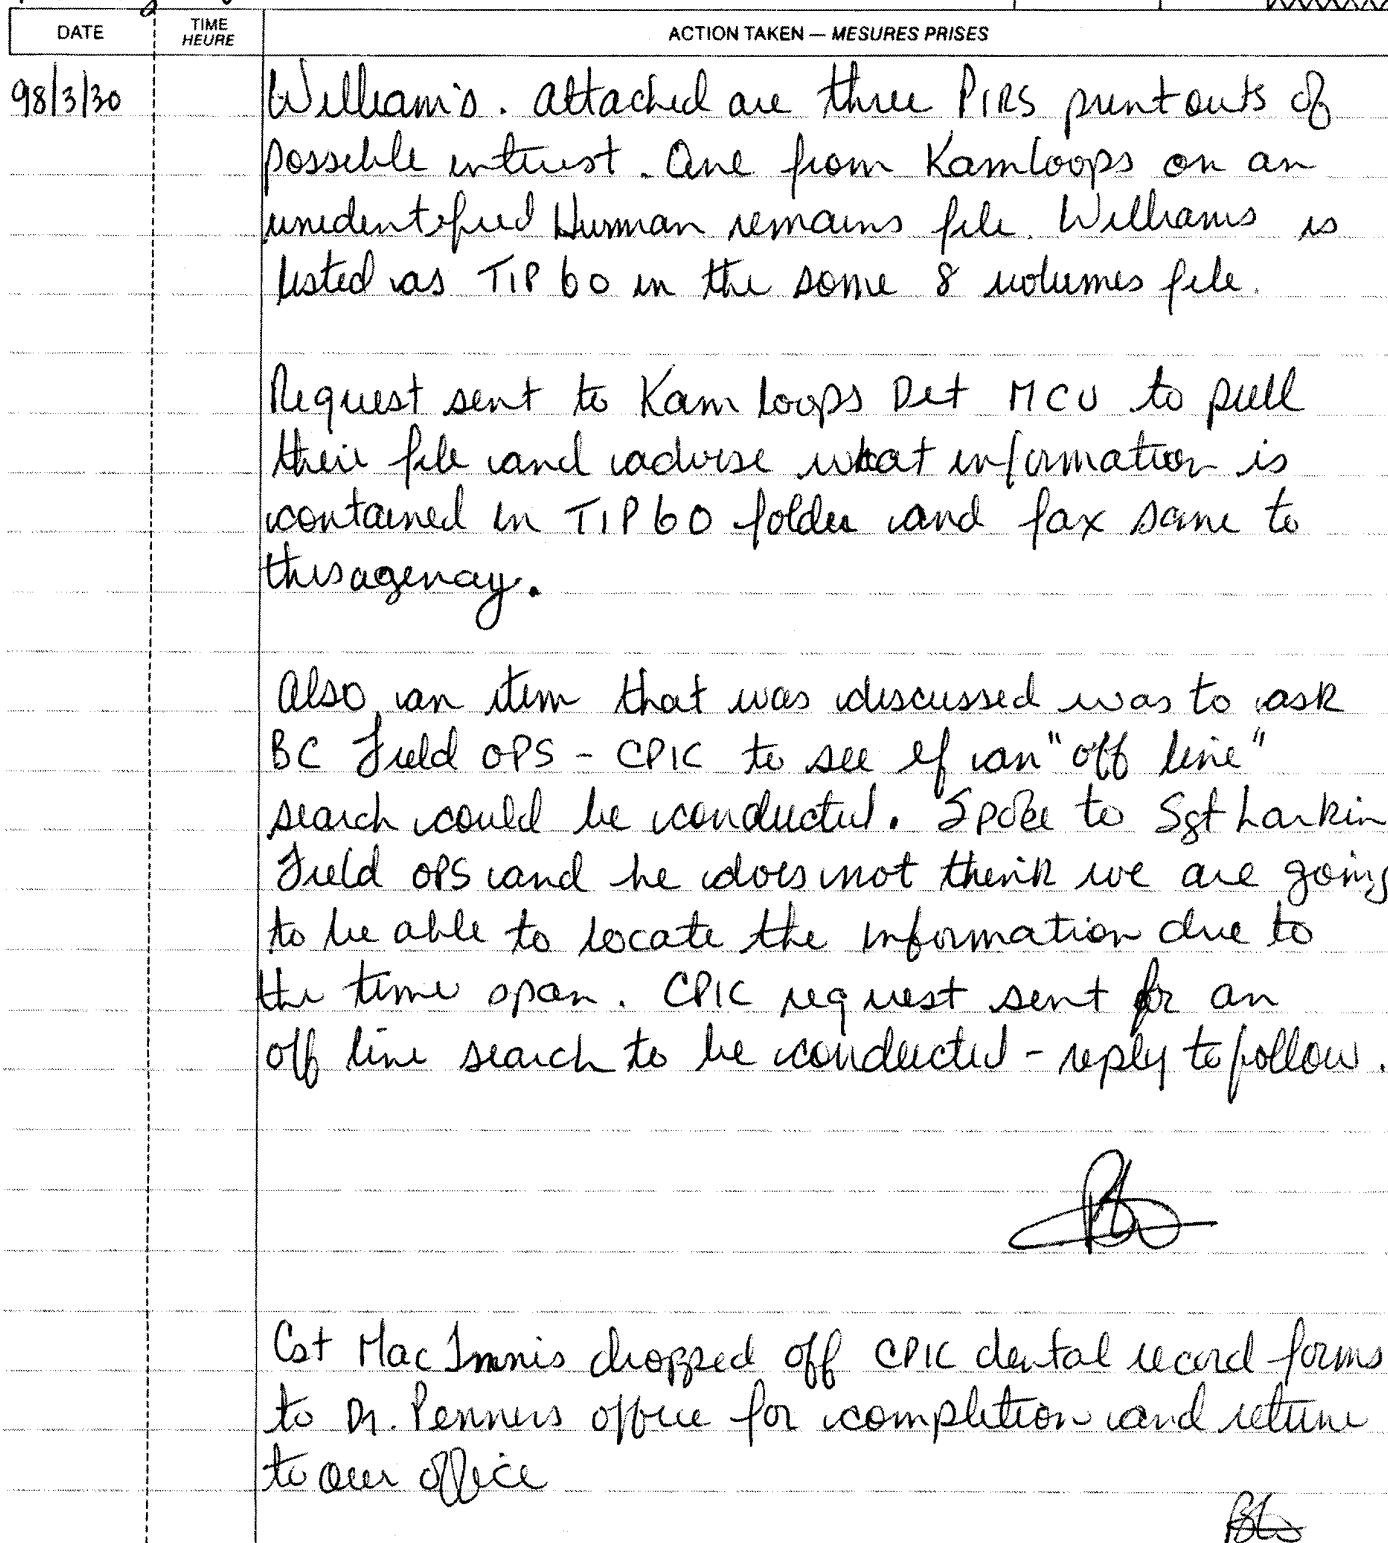 DATE TIME HEURE ACTION TAKEN — MESURES PRISES
98/3/30 William's. Attached are three PIRS printouts of
possible intrest. One from Kamloops on an
unidentified Human remains file. Williams is
listed as TIP 60 in the some 8 volumes file.
Request sent to Kamloops Det MCU to pull
their file and advise what information is
contained in TIP 60 folder and fax same to
this agenay.
Also an item that was discussed was to ask
BC Field OPS - CPIC to see if an "off line"
search could be conducted. Spoke to Sgt Larkin
Field OPS and he does not think we are going
to be able to locate the information due to
the time span. CPIC request sent for an
off line search to be conducted - reply to follow.
Cst MacInnis dropped off CPIC dental record forms
to Dr. Penners office for completion and return
to our office